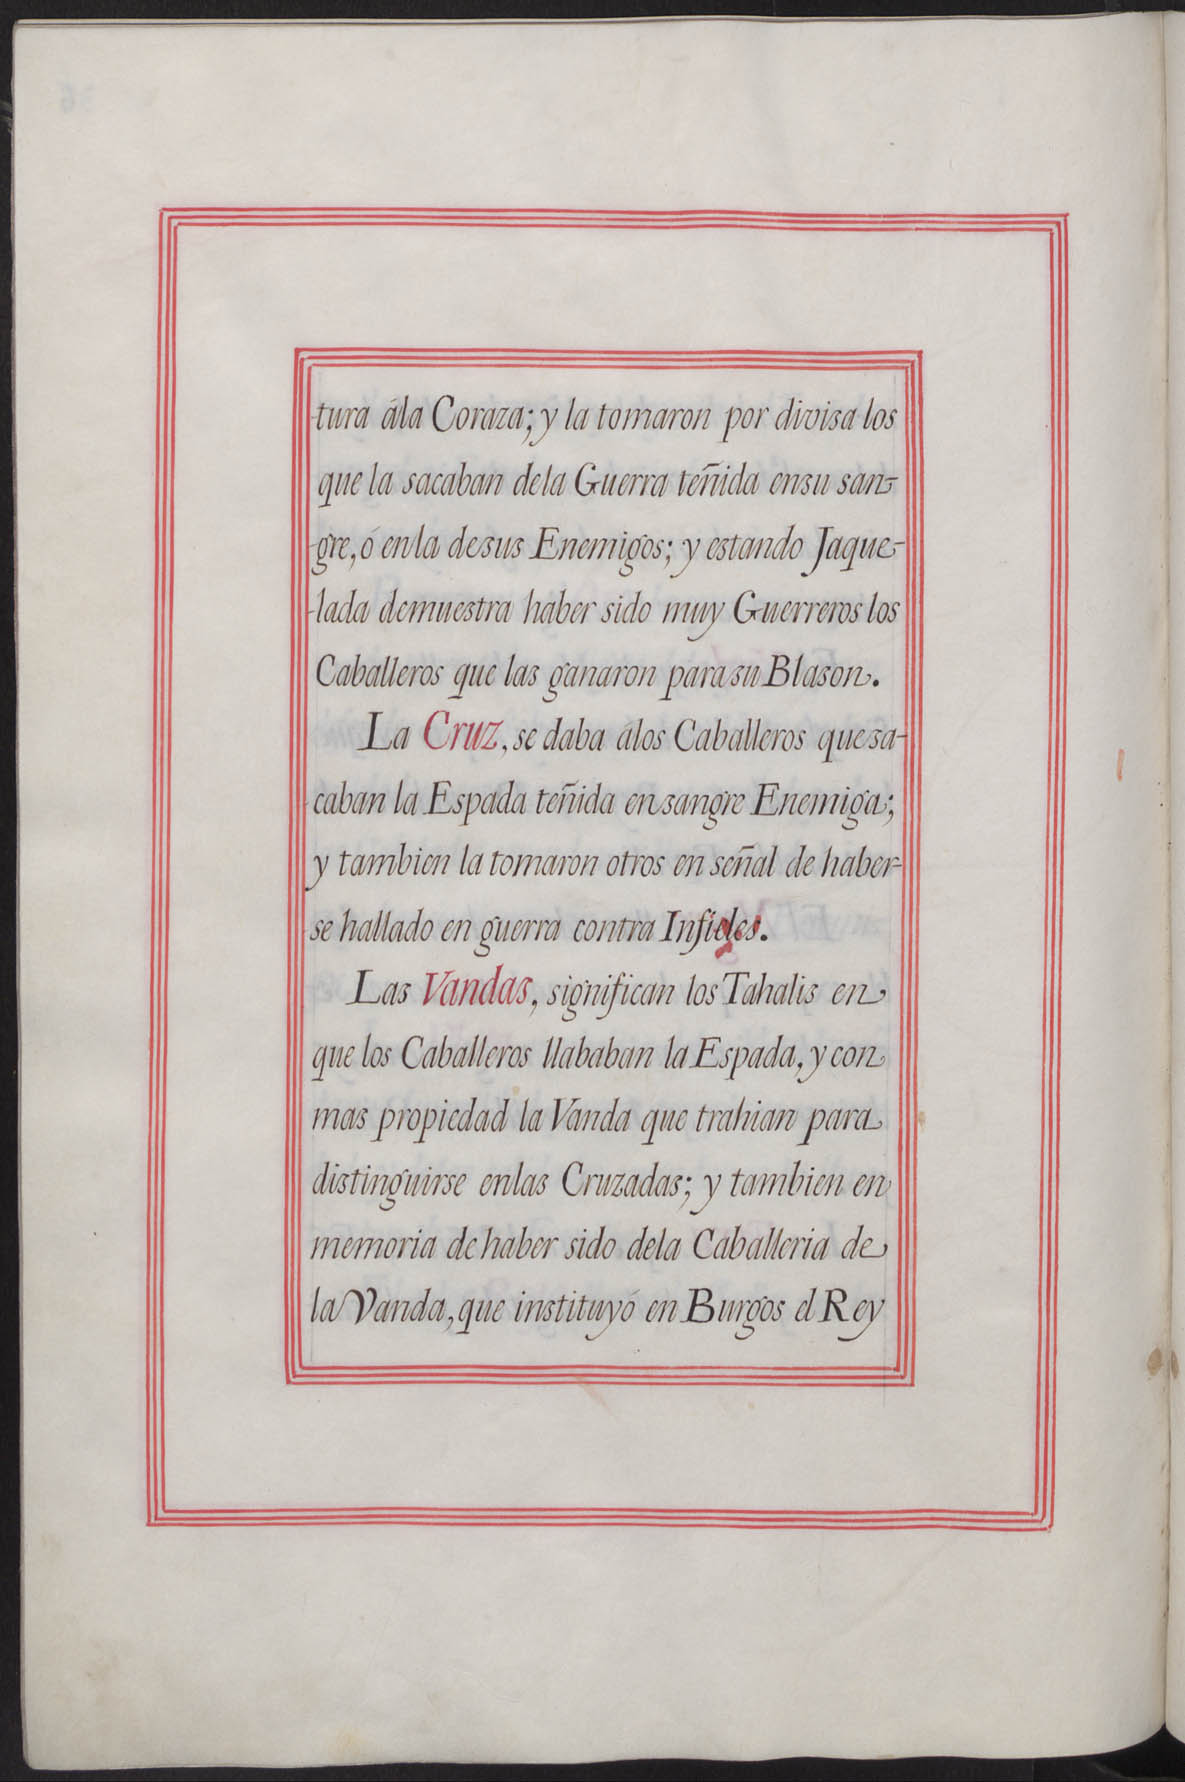 tura ála Coraza; y la tomaron por divisa los
que la sacaban dela Guerra teñida ensu san-
gre, ó enla desus Enemigos; y estando Jaque-
lada demuestra haber sido muy Guerreros los
Caballeros que las ganaron para su Blason.
La Cruz, se daba álos Caballeros que sa-
caban la Espada teñida ensangre Enemiga;
y tambien la tomaron otros en señal de haber-
se hallado en guerra contra Infieles.
Las Vandas, significan los Tahalis en
que los Caballeros llababan la Espada, y con
mas propiedad la Vanda que trahian para
distinguirse enlas Cruzadas; y tambien en
memoria de haber sido dela Caballeria de
la Vanda, que instituyó en Burgos el Rey